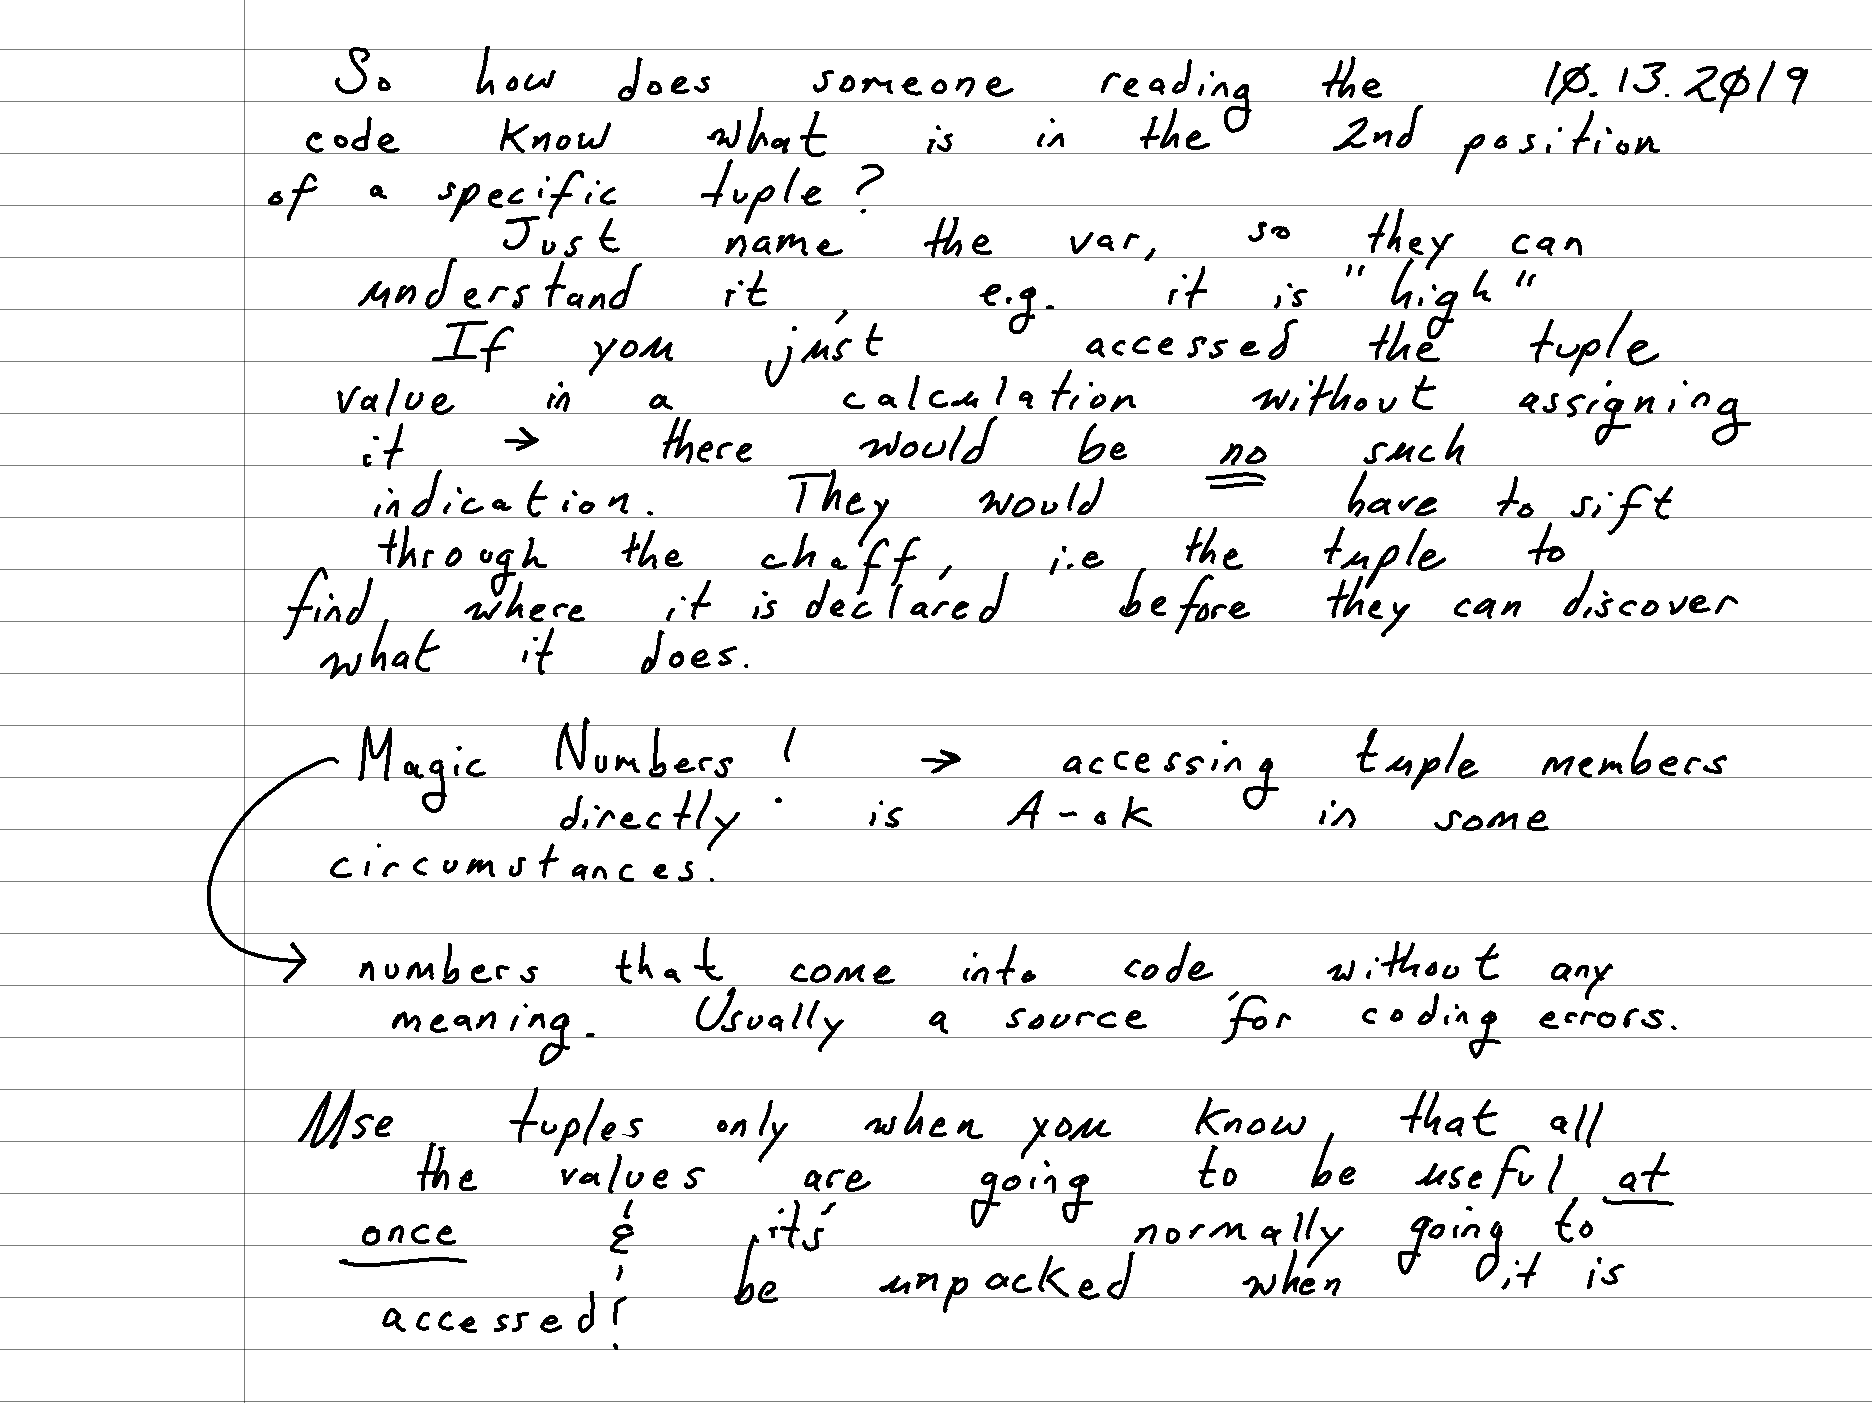 So how does someone reading the 10.13.2019
code know what is in the 2nd position
of a specific tuple?
Just name the var, so they can
understand it, e.g. it is "high"
If you just accessed the tuple
value in a calculation without assigning
it → there would be no such
indication. They would have to sift
through the chaff, i.e. the tuple to
find where it is declared before they can discover
what it does.
Magic Numbers! → accessing tuple members
directly is A-ok in some
circumstances.
→ numbers that come into code without any
meaning. Usually a source for coding errors.
Use tuples only when you know that all
the values are going to be useful at
once & it's normally going to
be unpacked when it is
accessed!